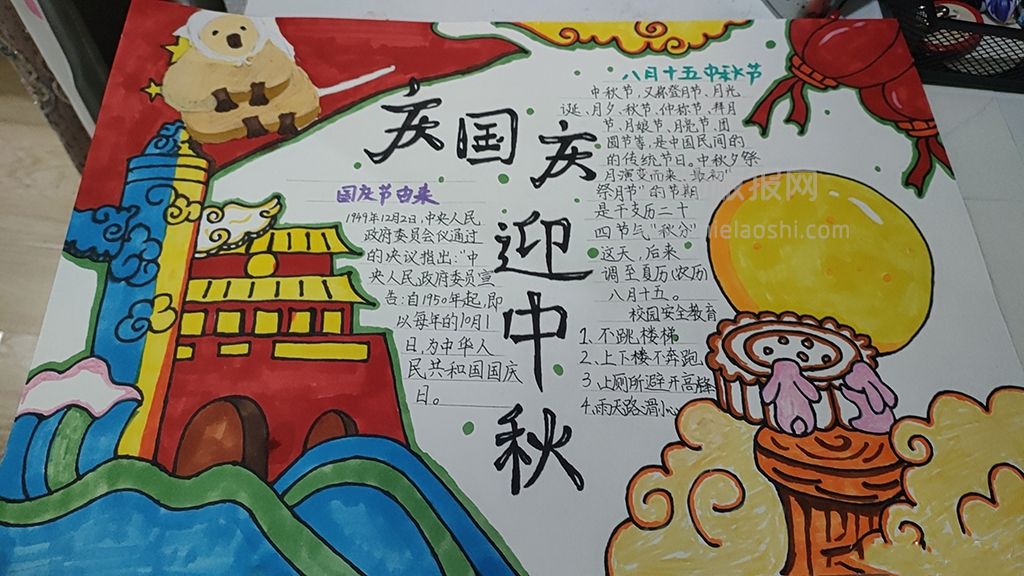 庆国庆
迎中秋
国庆节由来
1949年12月2日,中央人民
政府委员会仪通过
的决议指出:"中
央人民政府委员宣
告:自1950年起,即
以每年的10月1
日,为中华人
民共和国国庆
日。
八月十五中秋节
中秋节,又称登月节、月光
诞、月夕、秋节、仲秋节、拜月
节、月娘节、月亮节、团
圆节等,是中国民间的
的传统节日。中秋夕祭
月演变而来、最初"
祭月节"的节期
是干支历二十
四节气"秋分"
这天,后来
调至夏历(农历)
八月十五。
校园安全教育
1、不跳楼梯
2、上下楼不奔跑
3、上厕所避开高峰
4、雨天路滑小心
报网
ielaoshi.com